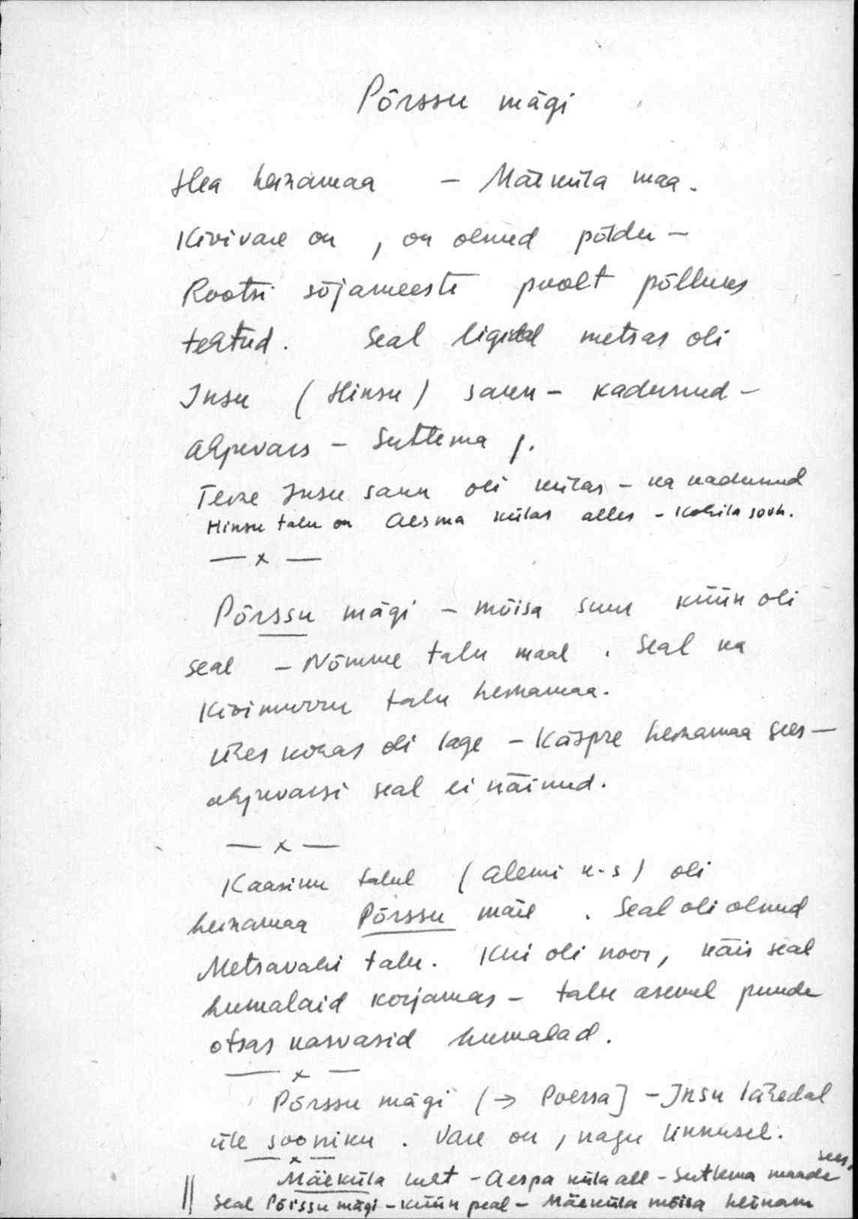 Põrssu mägi
Hea heinamaa - Mäeküla maa.
Kivivare on, on olnud põldu -
Rootsi sõjameeste poolt põlluks
tehtud. Seal ligidal metsas oli
Insu (Hinsu) saun - kadunud -
ahjuvars - Sutlema j.
Teine Insu saun oli külas - ka kadunud
Hinsu talu on Aesma külas alles - Kohila sovh.
— x —
Põrssu mägi - mõisa suur küün oli
seal - Nõmme talu maal. Seal ka
Kivimurru talu heinamaa.
Ühes kohas oli lage - Käspre heinamaa sees -
ahjuvarsi seal ei näinud.
— x —
Kaasiku talul (Alemi k-s) oli
heinamaa Põrssu mäel. Seal oli olnud
Metsavahi talu. Kui oli noor, käis seal
humalaid korjamas - talu asemel puude
otsas kasvasid humalad.
— x —
Põrssu mägi (→ Poessa] - Insu lähedal
üle sooniku. Vare on, nagu linnusel.
— x —
Mäeküla mõt - Aespa küla all - Sutlema maade sees.
Seal Põrssu mägi - küün peal - Mäeküla mõisa heinam